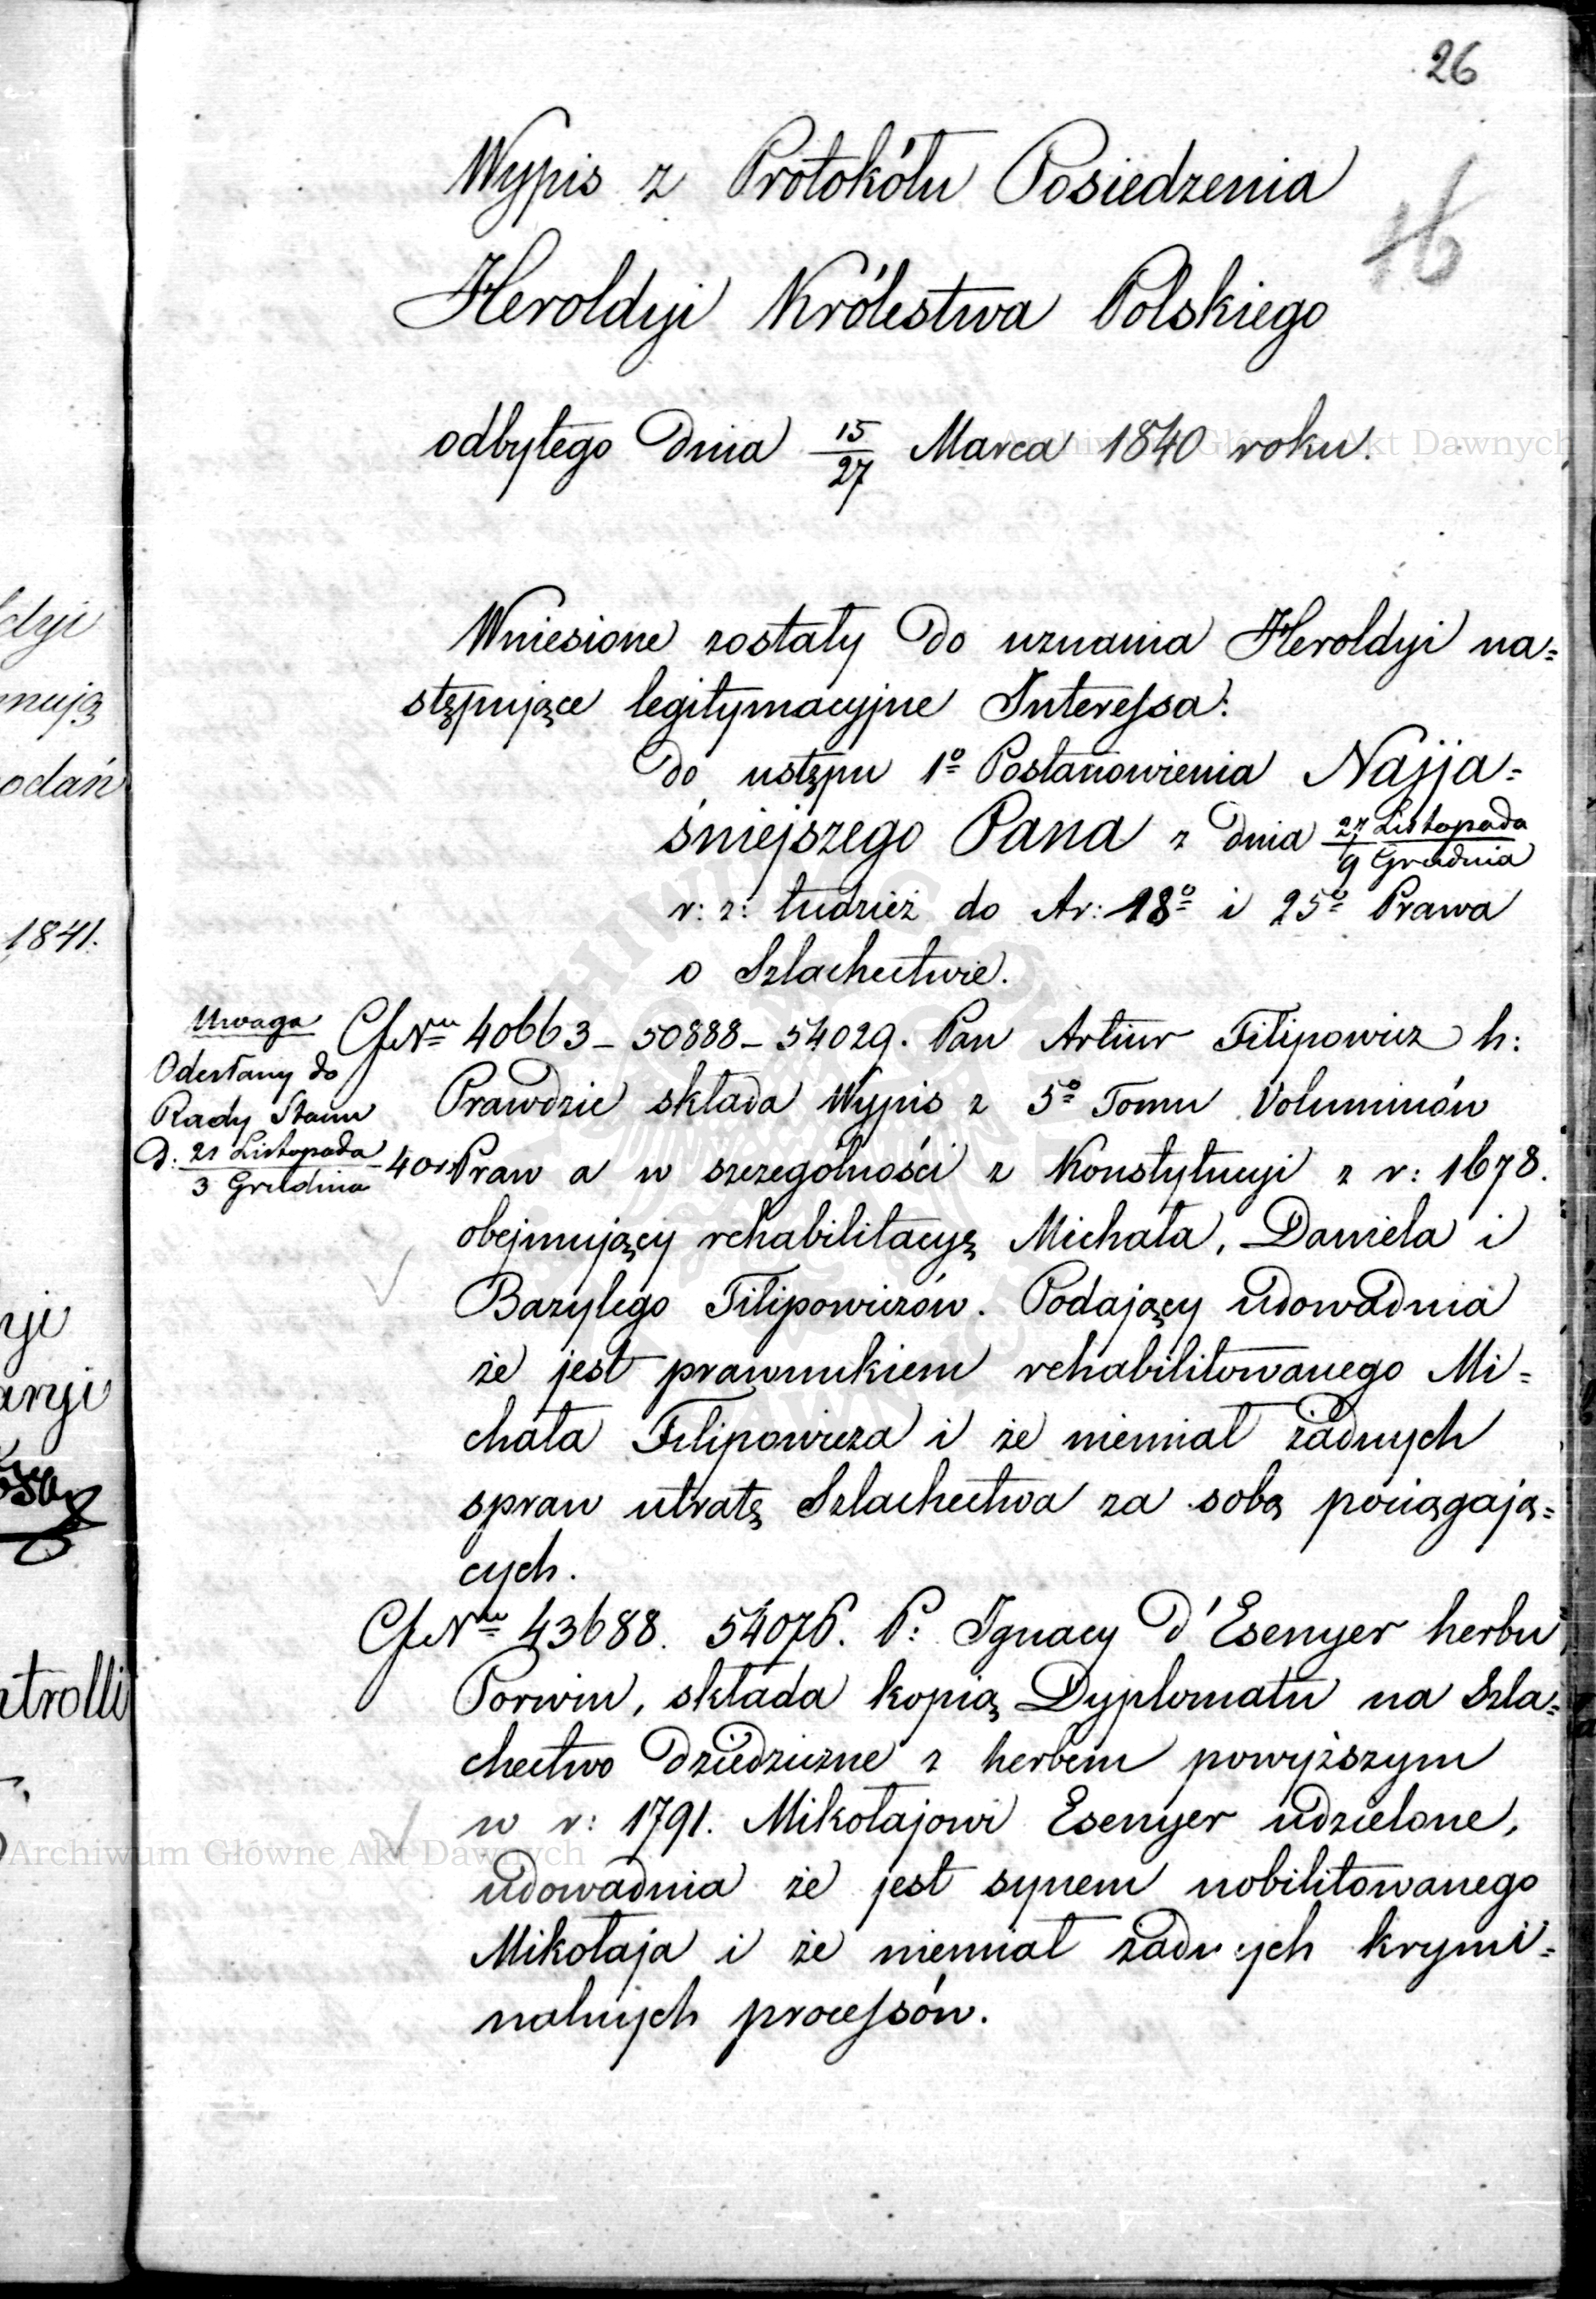 26
Wypis z Protokółu Posiedzenia
16
Heroldyi Królestwa Polskiego
odbytego dnia 15/27 Marca 1840 roku.
Archiwum Główne Akt Dawnych
Wniesione zostały do uznania Heroldyi na=
stępujące legitymacyjne Interessa:
do ustępu 1o Postanowienia Najja=
śniejszego Pana z dnia 27 Listopada/9 Grudnia
r: z: tudzież do Ar: 18o i 25o Prawa
o Szlachectwie.
Uwaga
Odesłany do
Rady Stanu
d: 21 Listopada/3 Grudnia 40 r
Nru 40663 – 50888 – 54029. Pan Artur Filipowicz h:
Prawdzic składa Wypis z 5o Tomu Voluminów
Praw a w szczególności z Konstytucyi z r: 1678.
obejmujący rehabilitacyę Michała, Daniela i
Bazylego Filipowiczów. Podający udowadnia
że jest prawnukiem rehabilitowanego Mi=
chała Filipowicza i że niemiał żadnych
spraw utratę Szlachectwa za sobą pociągają=
cych.
Nru 43688. 54076. P: Ignacy d'Esenyer herbu
Porwin, składa kopią Dyplomatu na Szla=
chectwo dziedziczne z herbem powyższym
w r: 1791. Mikołajowi Esenyer udzielone,
udowadnia że jest synem nobilitowanego
Mikołaja i że niemiał żadnych krymi=
nalnych processów.
Archiwum Główne Akt Dawnych
dyi
mują
odań
1841.
yi
aryi
trolli